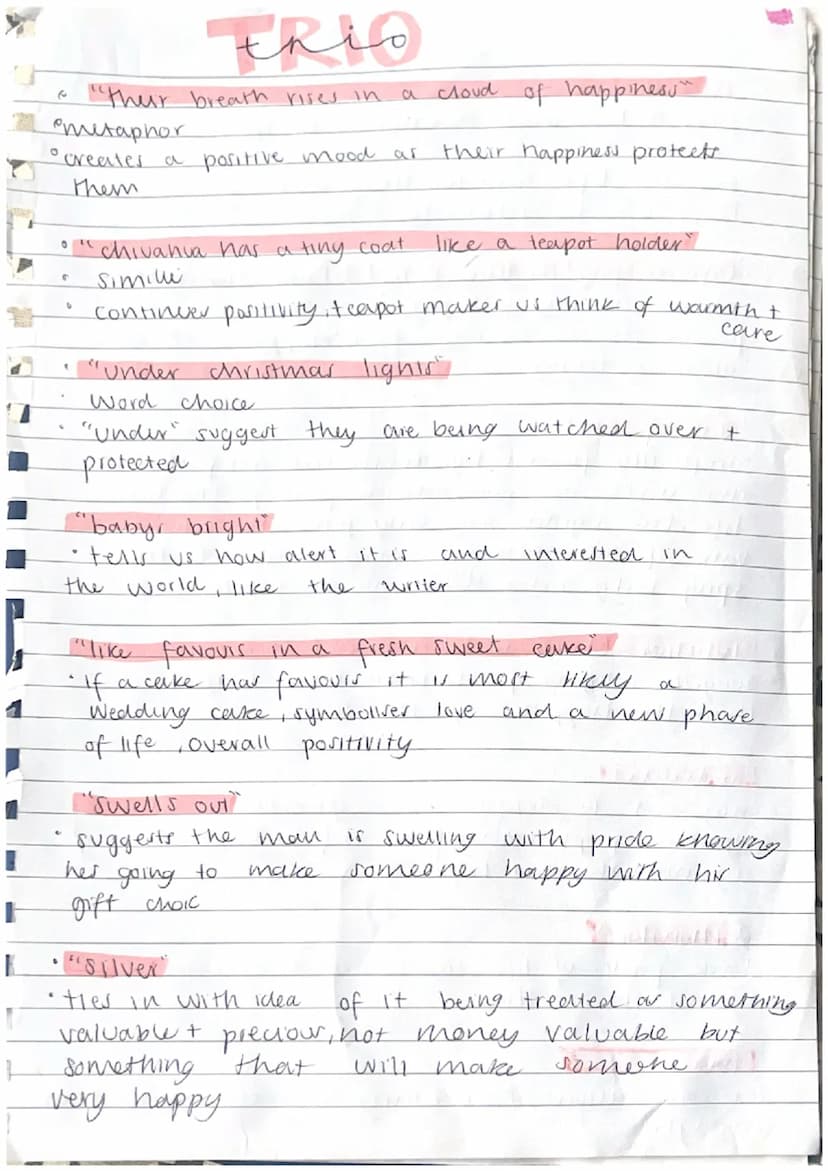 TRIO
trio
"Their breath rises in a cloud of happiness"
metaphor
creates a positive mood as their happiness protects
them
"chivahva has a tiny coat like a teapot holder"
similie
continues positivity, teapot makes us think of warmth +
care
"under christmas lights"
word choice
"under" suggest they are being watched over +
protected
"babys bright"
tells us how alert it is and interested in
the world, like the writer
"like favours in a fresh sweet cake"
if a cake has favours it is most likely a
wedding cake, symbolises love and a new phase
of life, overall positivity
"swells out"
suggests the man is swelling with pride knowing
hes going to make someone happy with his
gift choic
"silver"
ties in with idea of it being treated as something
valuable + precious, not money valuable but
something that will make someone
very happy